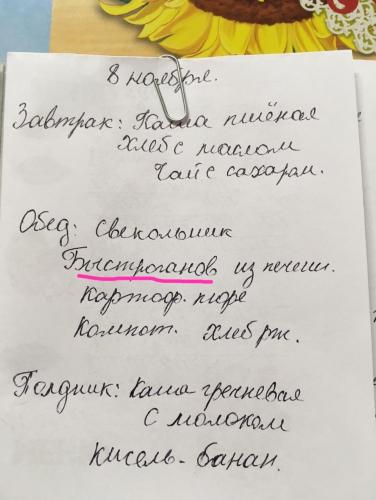 8 ноября.
Завтрак: Каша пшёная
Хлеб с маслом
Чай с сахаром.
Обед: Свекольник
Быстроганов из печени.
Картоф. пюре
Компот. хлеб рж.
Полдник: Каша гречневая
с молоком
кисель-банан.